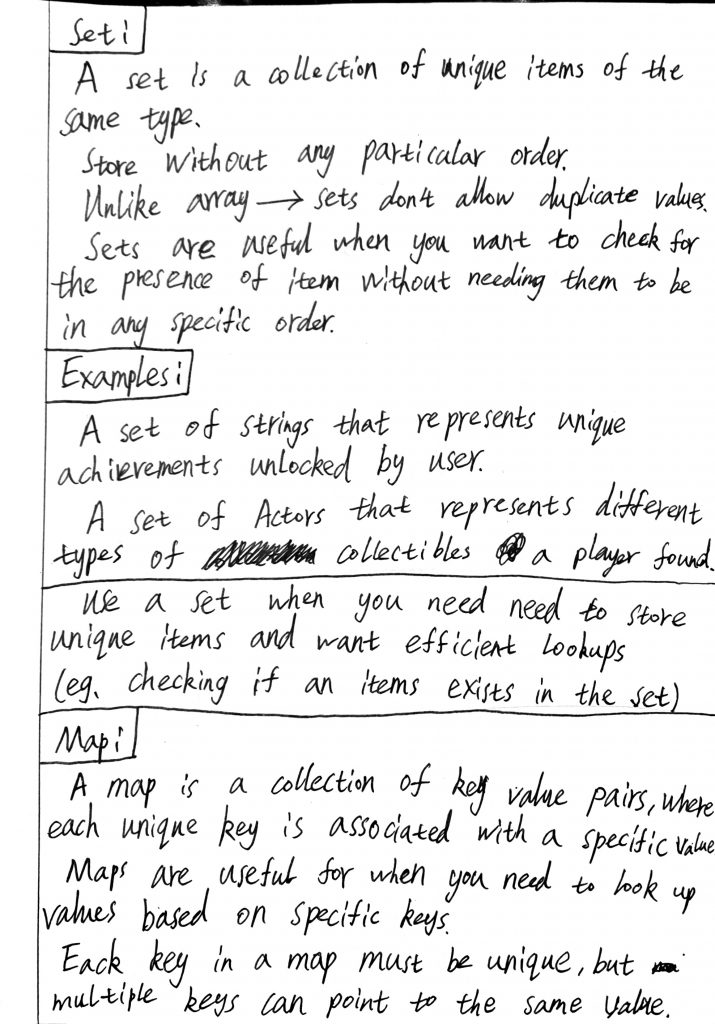 Set:
A set is a collection of unique items of the
same type.
Store without any particular order.
Unlike array → sets don't allow duplicate values.
Sets are useful when you want to check for
the presence of item without needing them to be
in any specific order.
Examples:
A set of strings that represents unique
achievements unlocked by user.
A set of Actors that represents different
types of collectibles a player found.
Use a set when you need need to store
unique items and want efficient Lookups
(eg. checking if an items exists in the set)
Map:
A map is a collection of key value pairs, where
each unique key is associated with a specific value
Maps are useful for when you need to look up
values based on specific keys.
Eack key in a map must be unique, but
multiple keys can point to the same value.